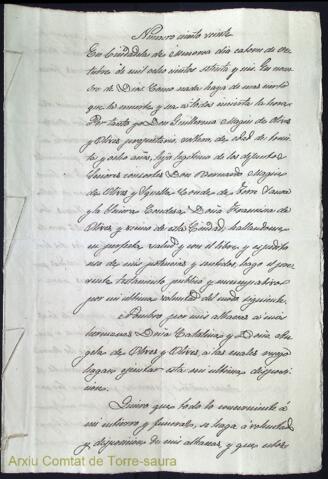 Número ciento veinte
En Ciudadela de Menorca día catorce de Oc-
tubre de mil ocho cientos setenta y seis. En nom-
bre de Dios. Como nada haya de mas cierto
que la muerte y sea a todos incierta la hora
Por tanto yo Don Guillermo Magin de Olives
y Olives propietario, soltero, de edad de treinta
y ocho años, hijo legítimo de los difuntos
Señores consortes Don Bernardo Magin
de Olives y Conde de Torre Saura
y la Señora Condesa Doña Francisca de
Olives y vecino de esta Ciudad, hallandome
en perfecta salud y con el libre y espedito
uso de mis potencias y sentidos, hago el pre-
sente testamento público
por mi última voluntad del modo siguiente.
Nombro por mis albaceas a mis
hermanas Doña Catalina y Doña An-
gela de Olives y Olives, a las cuales
hagan ejecutar esta mi última disposi-
cion.
Quiero que todo lo concerniente á
mi entierro y funeral, se haga á voluntad
y disposicion de mis albaceas, y que
Arxiu Comtat de Torre-saura